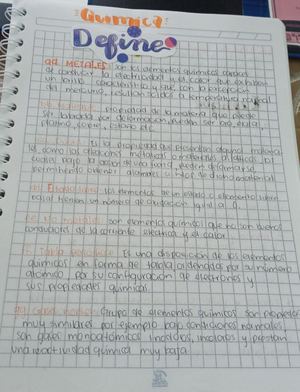 Química
Define
ad METALES: son los elementos químicos capaces
de conducir la electricidad y el calor, que exhiben
un brillo característico y que, con la excepción
del mercurio, resultan sólidos a temperatura normal
propiedad de la materia que puede
ser labrada por deformación, puede ser oro, plata,
platino, cobre, estaño etc.
es la propiedad que presentan algunos materia
les, como las aleaciones metálicas o materiales asfálticos, los
cuales bajo la acción de una fuerza, pueden deformarse
permitiendo obtener alambres o hilos de dicho material
los elementos de un estado o elemento libre
igual a 0.
No metales: son elementos químicos que no son buenos
conductores de la corriente eléctrica y el calor.
Tabla periódica: Es una disposición de los elementos
químicos en forma de tabla, ordenados por su número
atómico, por su configuración de electrones y
sus propiedades químicas.
Grupo de elementos químicos son propiedades
muy similares por ejemplo bajo condiciones normales,
son gases monoatómicos inodoros, incoloros y presentan
una reactividad química muy baja.